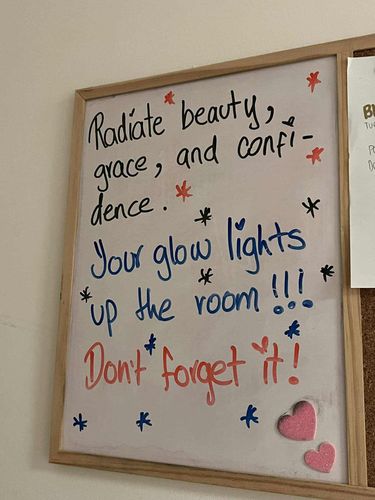 Radiate beauty,
grace, and confi-
dence.
Your glow lights
up the room!!!
Don't forget it!